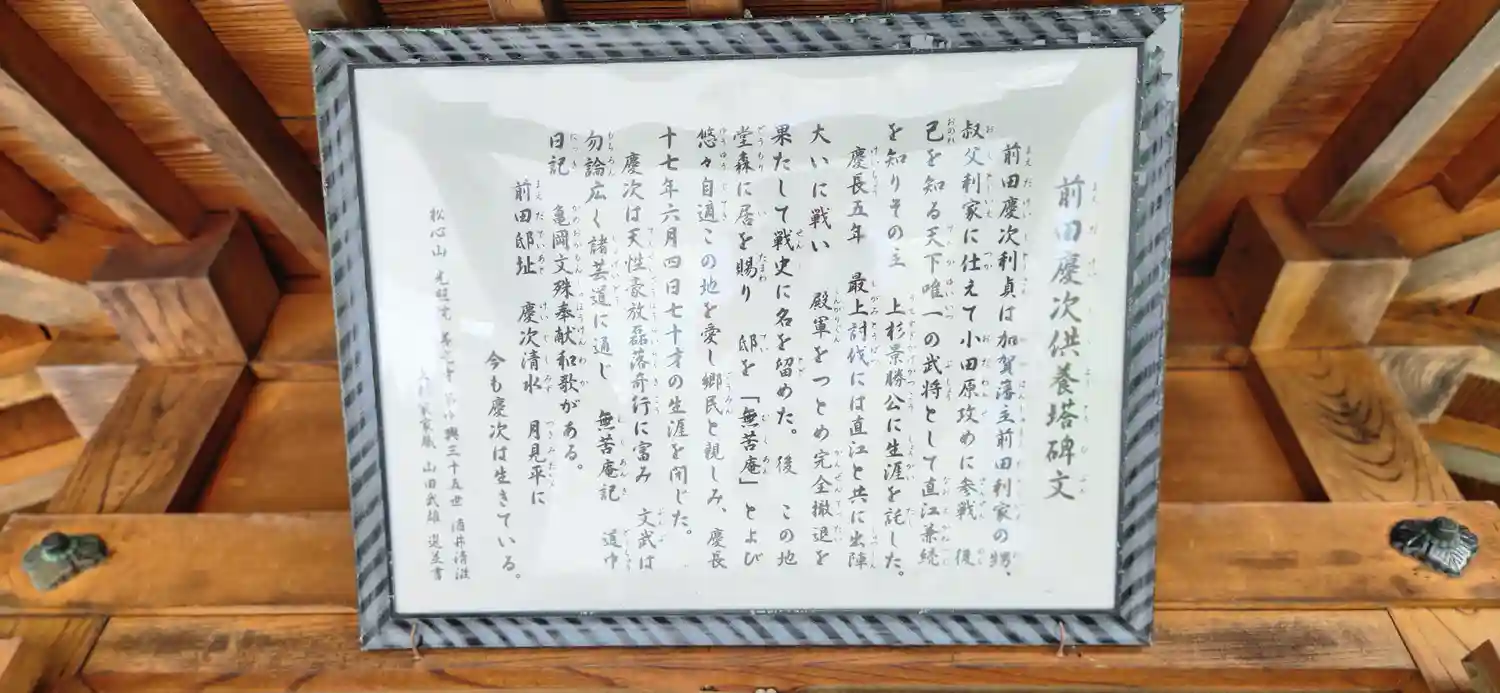 前田慶次供養塔碑文
前田慶次利貞は加賀藩主前田利家の甥、
叔父利家に仕えて小田原攻めに参戦 後
己を知る天下唯一の武将として直江兼続
を知りその主 上杉景勝公に生涯を託した。
慶長五年 最上討伐には直江と共に出陣
大いに戦い 殿軍をつとめ完全撤退を
果たして戦史に名を留めた。後 この地
堂森に居を賜り 邸を「無苦庵」とよび
悠々自適この地を愛し郷民と親しみ、慶長
十七年六月四日七十才の生涯を閉じた。
慶次は天性豪放磊落奇行に富み 文武は
勿論広く諸芸道に通じ 無苦庵記 道中
日記 亀岡文殊奉献和歌がある。
前田邸址 慶次清水 月見平に
今も慶次は生きている。
松心山 光照院 善光寺 中興三十五世 酒井清滋
家蔵 山田武雄 選並書